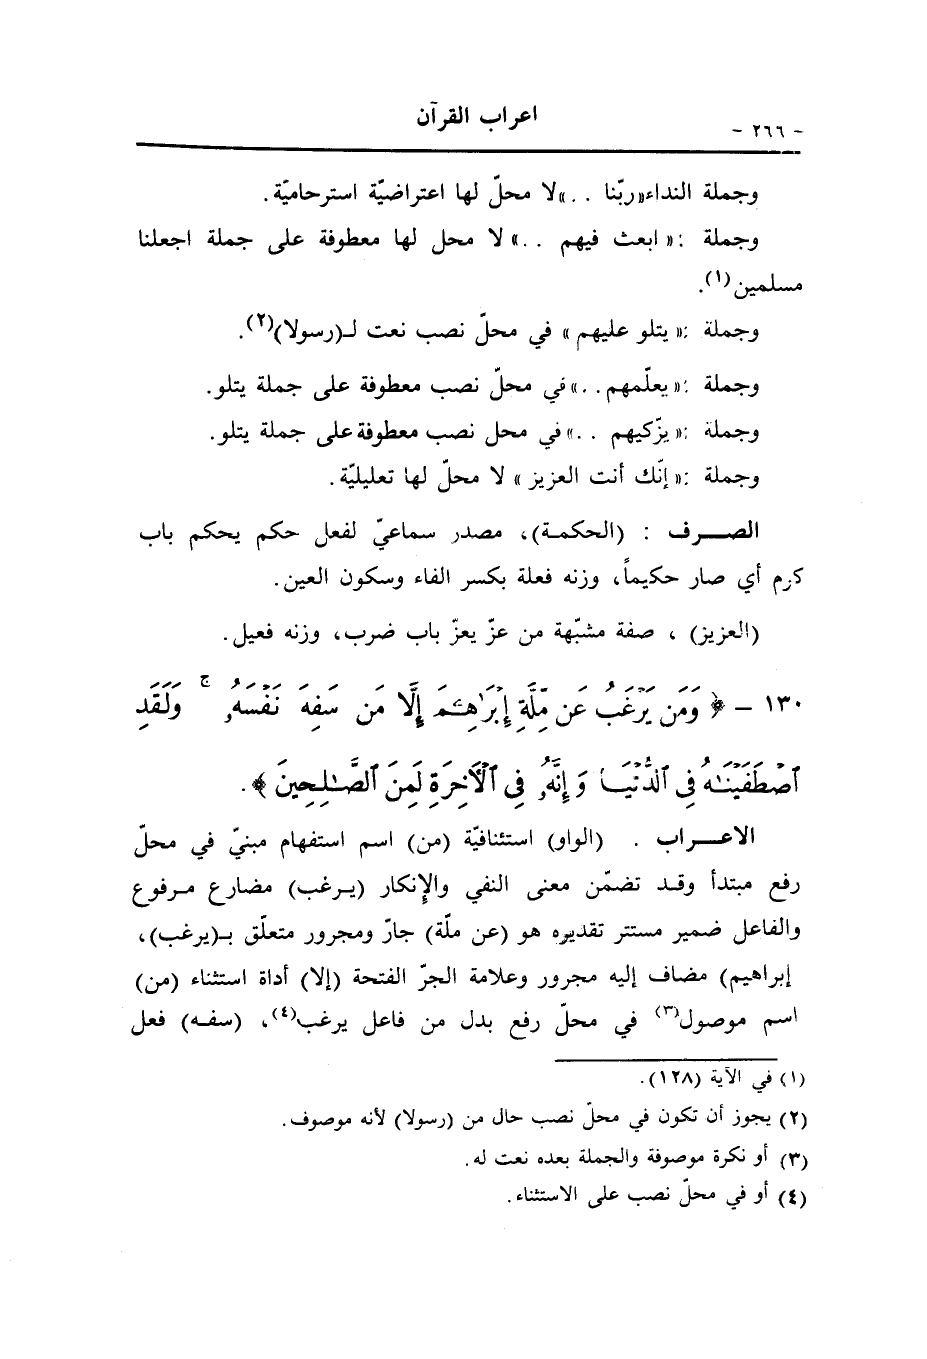 - ٢٦٦ -
اعراب القرآن
وجملة النداء«ربّنا . .»لا محلّ لها اعتراضيّة استرحاميّة.
وجملة :« ابعث فيهم . .» لا محل لها معطوفة على جملة اجعلنا
مسلمين(١).
وجملة :« يتلو عليهم » في محلّ نصب نعت لـ(رسولا)(٢).
وجملة :« يعلّمهم . .»في محلّ نصب معطوفة على جملة يتلو.
وجملة :« يزّكيهم . .»في محل نصب معطوفة على جملة يتلو.
وجملة :« إنّك أنت العزيز » لا محلّ لها تعليليّة.
الصـــرف : (الحكمة)، مصدر سماعيّ لفعل حكم يحكم باب
كرم أي صار حكيماً، وزنه فعلة بكسر الفاء وسكون العين.
(العزيز) ، صفة مشبّهة من عزّ يعزّ باب ضرب، وزنه فعيل.
١٣٠ - ﴿ وَمَن يَرْغَبُ عَن مِّلَّةِ إِبْرَٰهِـۧمَ إِلَّا مَن سَفِهَ نَفْسَهُۥ ۚ وَلَقَدِ
ٱصْطَفَيْنَـٰهُ فِى ٱلدُّنْيَا وَإِنَّهُۥ فِى ٱلْـَٔاخِرَةِ لَمِنَ ٱلصَّـٰلِحِينَ ﴾.
الاعـــراب . (الواو) استئنافيّة (من) اسم استفهام مبنيّ في محلّ
رفع مبتدأ وقد تضمّن معنى النفي والإنكار (يرغب) مضارع مرفوع
والفاعل ضمير مستتر تقديره هو (عن ملّة) جارّ ومجرور متعلّق بـ(يرغب)،
إبراهيم) مضاف إليه مجرور وعلامة الجرّ الفتحة (إلا) أداة استثناء (من)
اسم موصول(٣) في محلّ رفع بدل من فاعل يرغب(٤)، (سفه) فعل
(١) في الآية (١٢٨).
(٢) يجوز أن تكون في محلّ نصب حال من (رسولا) لأنه موصوف.
(٣) أو نكرة موصوفة والجملة بعده نعت له.
(٤) أو في محلّ نصب على الاستثناء.